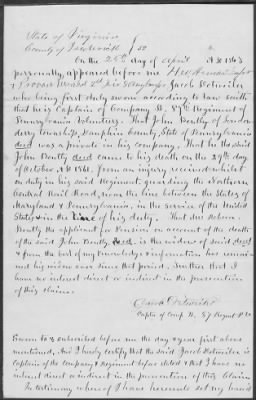 State of Virginia
County of ss
On the 28th day of April A D 1863
personally appeared before me
& Provost Marshal 2d Div Jacob Detweiler
who being first duly sworn according to law saith
that he is Captain of Company H. 87th Regiment of
Pennsylvania Volunteers. That John Bently of London
derry Township, Dauphin County, State of Pennsylvania
decd was a private in his company. That he the said
John Bently decd came to his death on the 29th day
of October A D 1861, from an injury received whilst
on duty in his said Regiment, guarding the Northern
Central Rail Road, from the line between the States of
Maryland & Pennsylvania, in the service of the United
States & in the line of his duty. That Mrs
Bently the applicant for Pension on account of the death
of the said John Bently, decd. is the widow of said decd
& from the best of my knowledge & information has remain
ed his widow ever since that period. Further that I
have no interest direct or indirect in the prosecution
of this claim.
Jacob Detweiler
Captn of Comp H, 87 Regmt P.V.
Sworn to & subscribed before me the day & year first above
mentioned, And I hereby certify that the said Jacob Detweiler is
Captain of the company & regiment before stated & that I have no
interest direct or indirect in the prosecution of this Claim
In testimony whereof I have hereunto set my hand